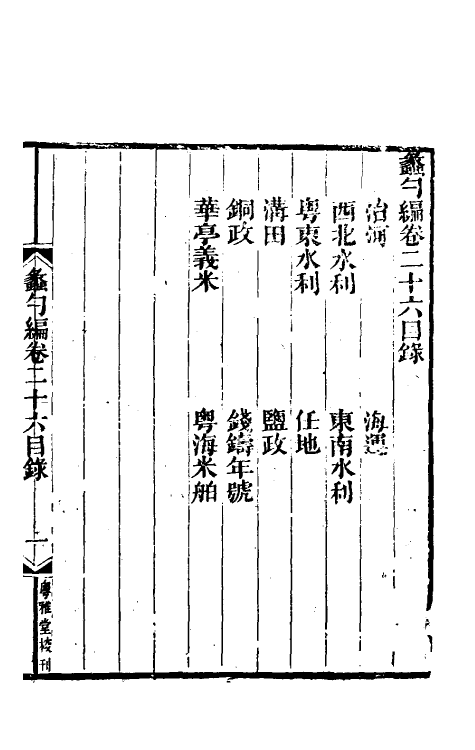 蠡勺編卷二十六目錄
治河　海運
西北水利　東南水利
粵東水利　任地
溝田　鹽政
銅政　錢鑄年號
華亭義米　粵海米舶
蠡勺編卷二十六目錄　一　粵雅堂校刊